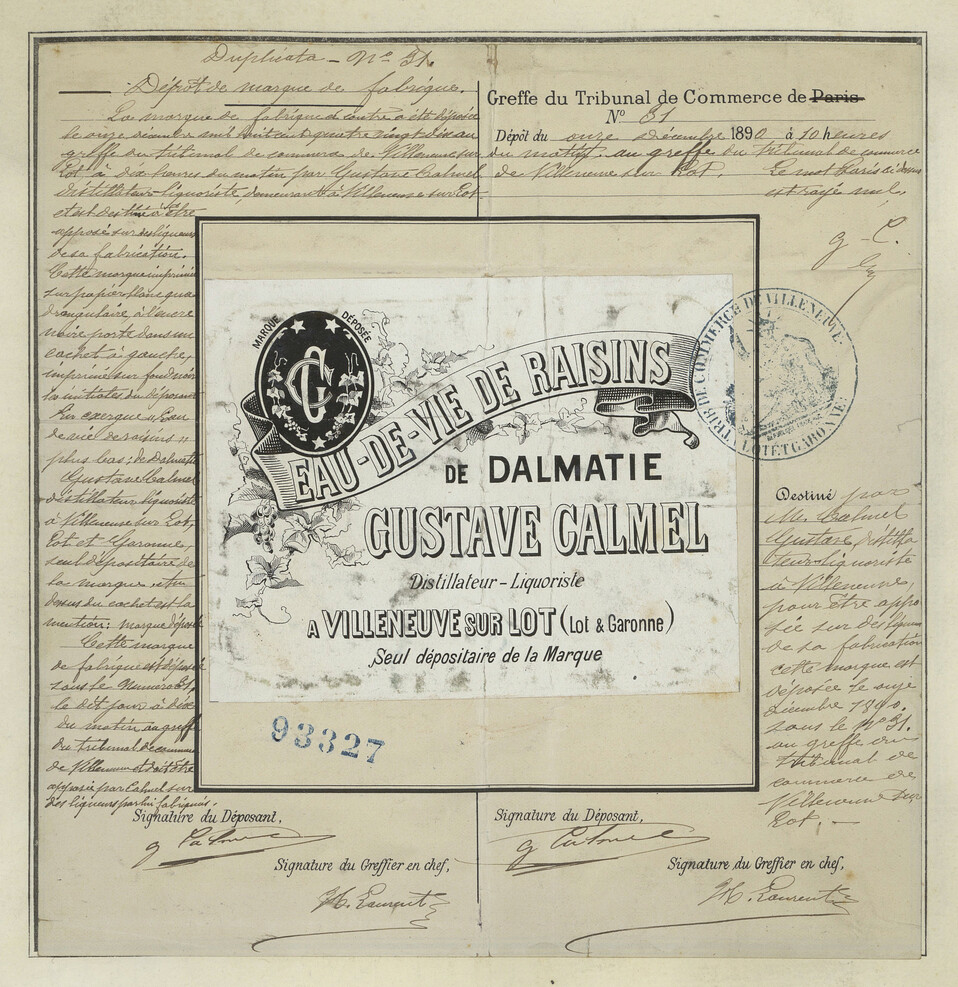 Duplicata - No 31.
Dépôt de marque de fabrique.
La marque de fabrique ci-contre a été déposée
le onze décembre mil huit cent quatre vingt dix au
greffe du tribunal de commerce de Villeneuve sur
Lot à dix heures du matin par Gustave Calmel
distillateur-liquoriste, demeurant à Villeneuve sur Lot
et est destinée à être
apposée sur des liqueurs
de sa fabrication.
Cette marque imprimée
sur papier blanc qua-
drangulaire, à l'encre
noire porte dans un
cachet à gauche,
imprimé sur fond noir
les initiales du déposant
En exergue "Eau
de vie de raisins"
plus bas: de Dalmatie
Gustave Calmel
distillateur liquoriste
à Villeneuve sur Lot,
Lot et Garonne,
seul dépositaire de
la marque, et au
dessus du cachet est la
mention: marque déposée
Cette marque
de fabrique est déposée
sous le numéro 31,
le dit jour à dix h
du matin au greffe
du tribunal de commerce
de Villeneuve et doit être
apposée par Calmel sur
des liqueurs par lui fabriqués.
Greffe du Tribunal de Commerce de Paris
No 31
Dépôt du onze décembre 1890 à 10 heures
du matin, au greffe du tribunal de commerce
de Villeneuve sur Lot. Le mot Paris ci-dessus
est rayé nul,
g - C.
MARQUE DÉPOSÉE
GC
EAU-DE-VIE DE RAISINS
DE DALMATIE
GUSTAVE CALMEL
Distillateur-Liquoriste
A VILLENEUVE SUR LOT (Lot & Garonne)
Seul dépositaire de la Marque
TRIB. DE COMMERCE DE VILLENEUVE
LOT ET GARONNE
93327
Destiné par
M. Calmel
Gustave, distilla
teur-liquoriste
à Villeneuve,
pour être appo-
sée sur des liqueurs
de sa fabrication
cette marque est
déposée le onze
décembre 1890.
sous le No 31.
au greffe du
tribunal de
commerce de
Villeneuve sur
Lot. -
Signature du Déposant,
g Calmel
Signature du Greffier en chef,
H. Laurent
Signature du Déposant,
g Calmel
Signature du Greffier en chef,
H. Laurent